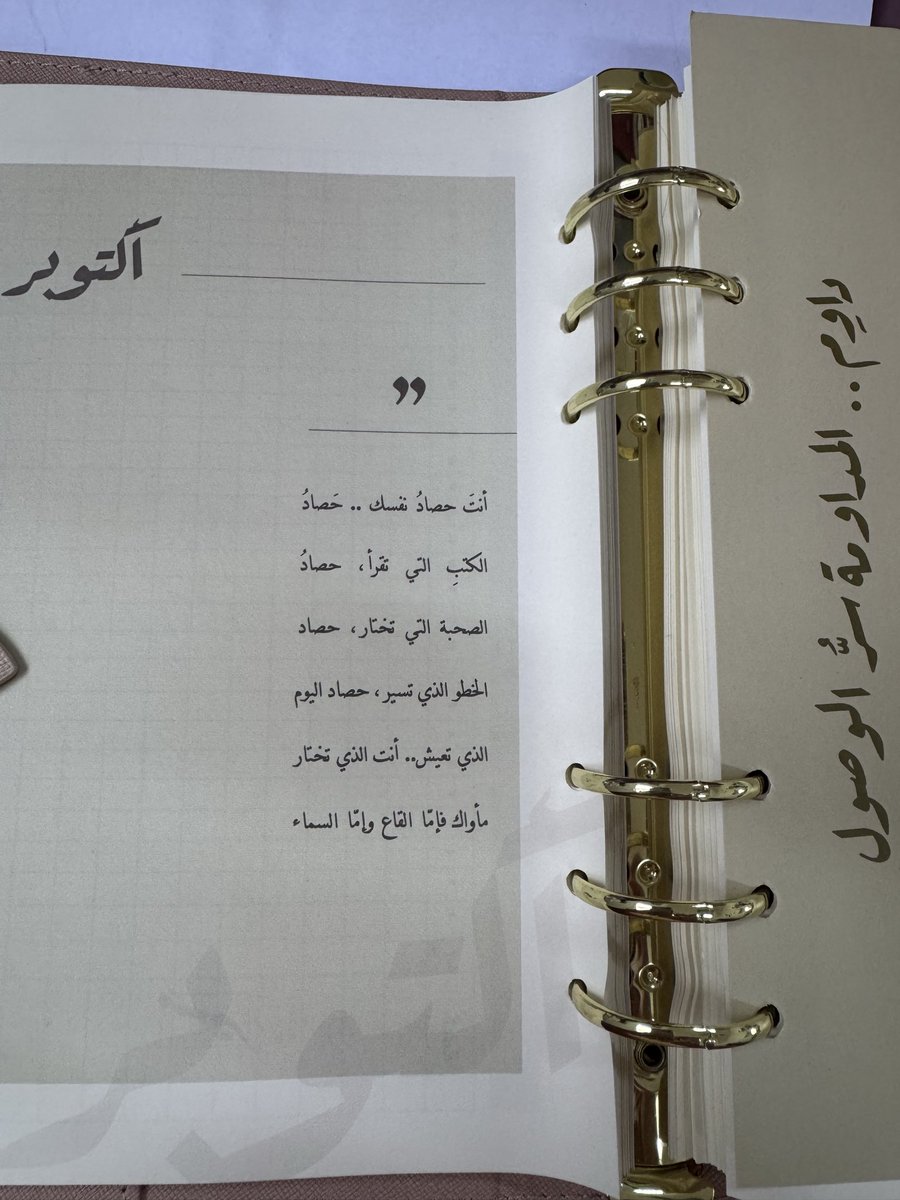 أكتوبر
”
أنتَ حصادُ نفسك .. حَصادُ
الكتبِ التي تقرأ، حصادُ
الصحبة التي تختار، حصاد
الخطو الذي تسير، حصاد اليوم
الذي تعيش.. أنت الذي تختار
مأواك فإمّا القاع وإمّا السماء
أكتوبر
داوِم .. المداومة سرُّ الوصول